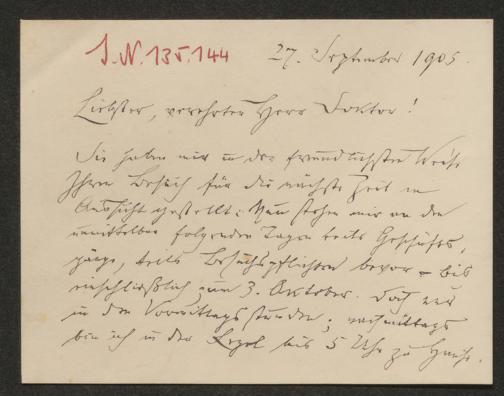 I.N.135.144
27. September 1905.
Liebster, verehrter Herr Doktor!
Sie haben mir in der freundlichsten Weise
Ihren Besuch für die nächste Zeit in
Aussicht gestellt. Nun stehen mir an den
unmittelbar folgenden Tagen teils Geschäfts-
gänge, teils Besuchspflichten bevor – bis
einschließlich zum 3. Oktober. Doch nur
in den Vormittagsstunden; nachmittags
bin ich in der Regel bis 5 Uhr zu Hause.